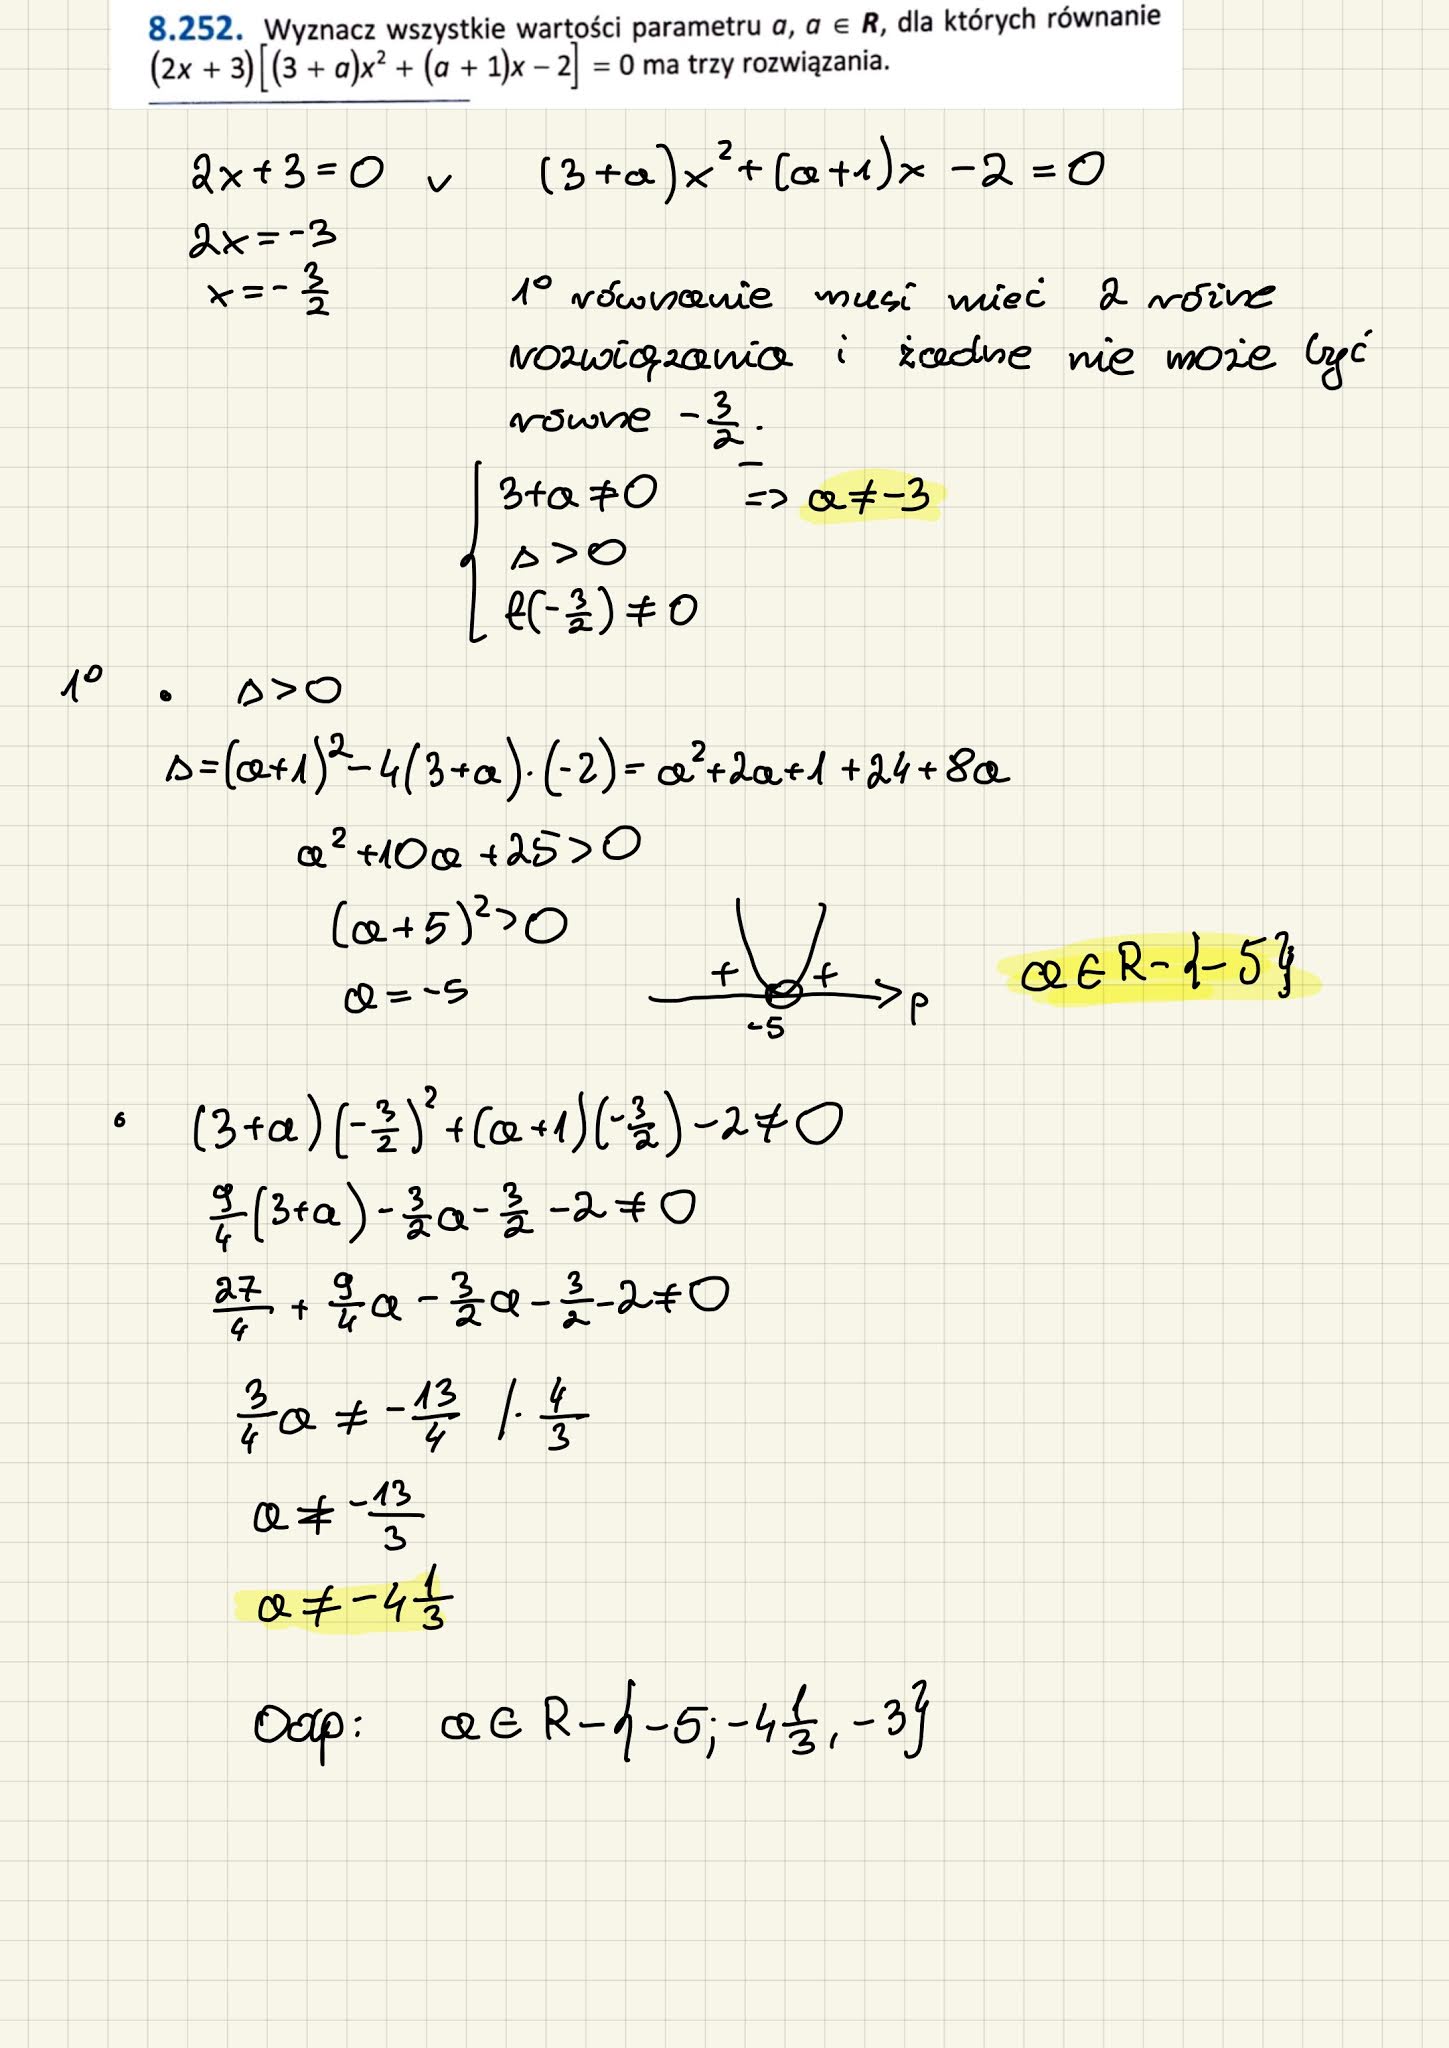 8.252. Wyznacz wszystkie wartości parametru a, a ∈ R, dla których równanie
(2x + 3)[(3 + a)x² + (a + 1)x − 2] = 0 ma trzy rozwiązania.
2x+3=0 ∨ (3+a)x²+(a+1)x -2 = 0
2x=-3
x=-3/2
1° równanie musi mieć 2 różne
rozwiązania i żadne nie może być
równe -3/2.
3+a≠0 => a≠-3
Δ>0
f(-3/2)≠0
1° • Δ>0
Δ=(a+1)²-4(3+a)·(-2)=a²+2a+1+24+8a
a²+10a+25>0
(a+5)²>0
a=-5
+ +
-5
p
a∈R-{-5}
• (3+a)(-3/2)²+(a+1)(-3/2)-2≠0
9/4(3+a)-3/2a-3/2-2≠0
27/4+9/4a-3/2a-3/2-2≠0
3/4a≠-13/4 /·4/3
a≠-13/3
a≠-4 1/3
Odp: a∈R-{-5;-4 1/3, -3}